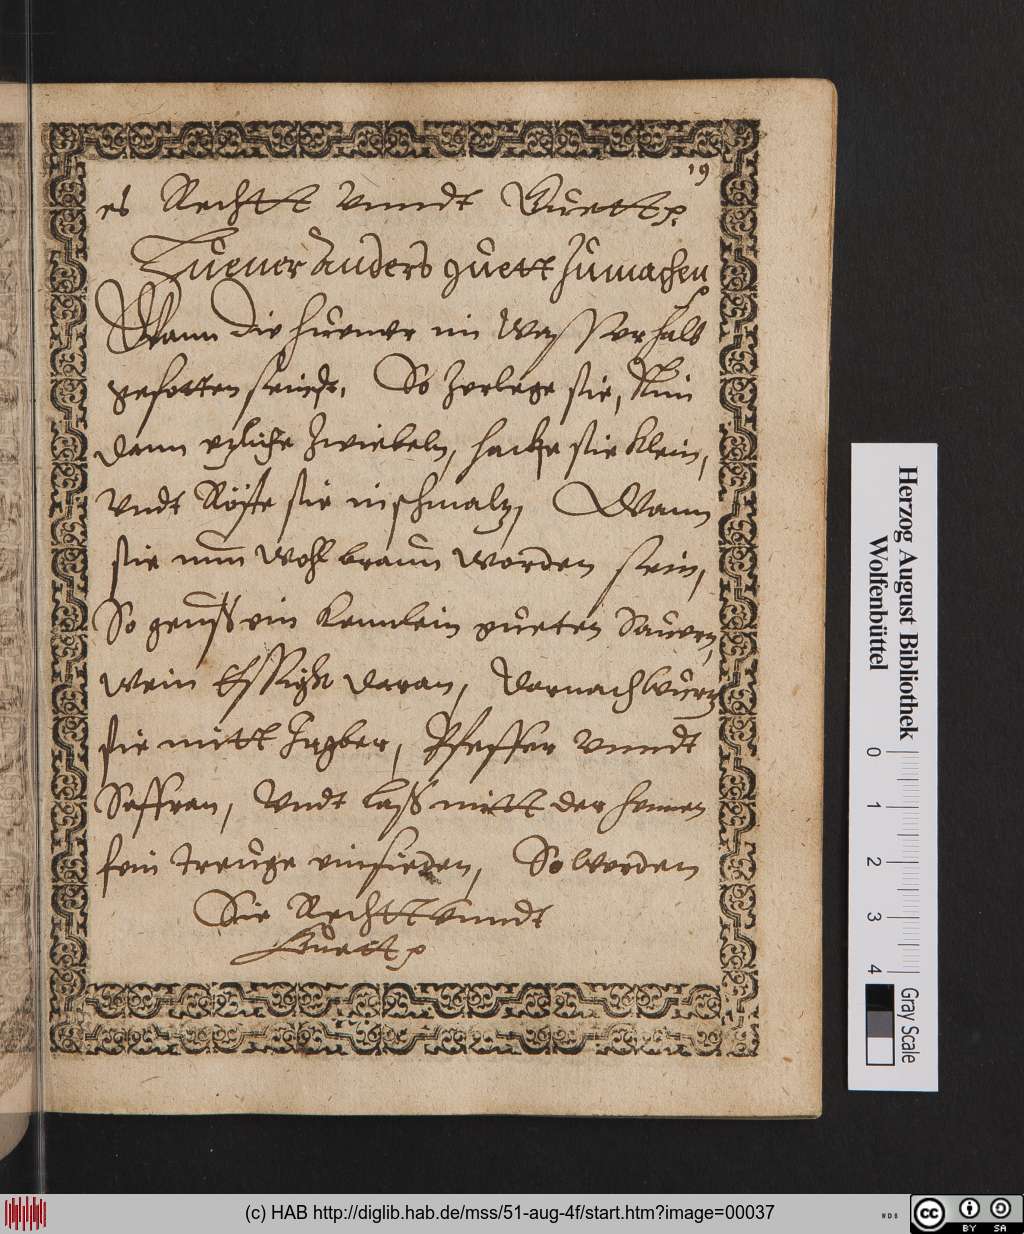 19
es Rechtt Vnndt Guett ꝛc.
Huener anders guett Zumachen
Wann die huener im Wasser halb
gesotten seindt, So Zerlege sie, Nim
dann ezliche Zwiebeln, hacke sie klein,
Vndt Röste sie in schmalz, Wann
sie nun Wohl braun worden sein,
So geuß ein kenlein gueten Sauern,
Wein Essigk daran, Darnach Würz
sie mitt Ingber, Pfeffer Vnndt
Saffran, Vndt laß mitt der hennen
fein treuge einsieden, So Werden
Sie Rechtt Vnndt
Guett ꝛc.
Herzog August Bibliothek
Wolfenbüttel
0 1 2 3 4
Gray Scale
(c) HAB http://diglib.hab.de/mss/51-aug-4f/start.htm?image=00037
WDB
cc BY SA